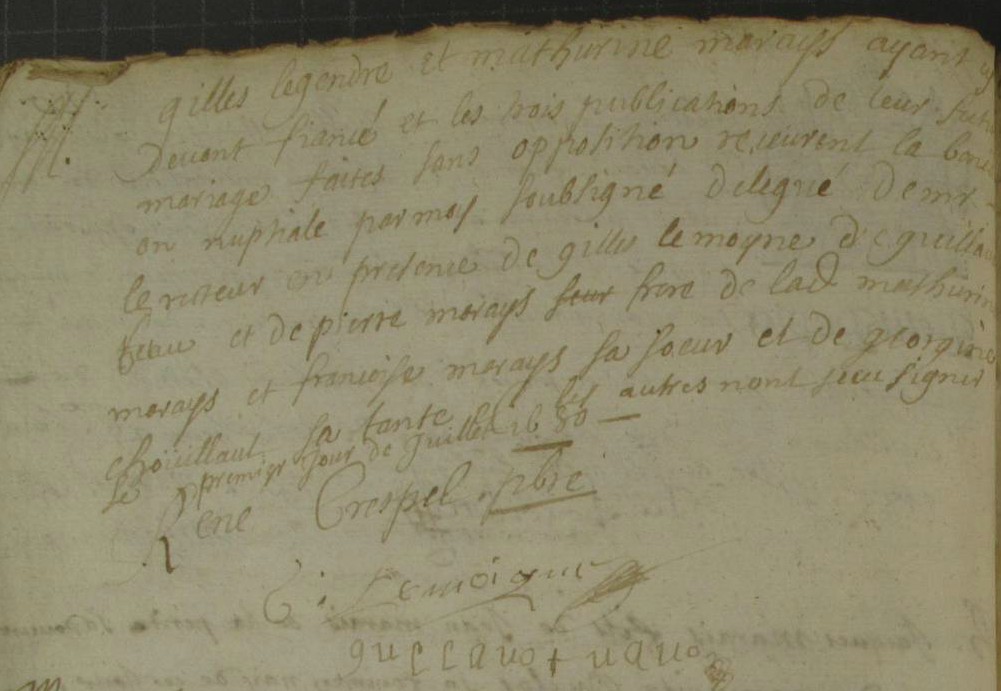 gilles legendre et mathurine morays ayant
Devant fiancé et les trois publications de leur futu
mariage faites sans opposition receurent la bene
on nuptiale par moy soubsigné delegué de mr
le recteur en presence de gilles lemoyne de guillau
et de pierre morays frere de lad mathurin
morays et francoise morays sa soeur et de georgine
chouillaut sa tante les autres nont sceu signer
Le premier jour de Juillet 1680
Rene Crespel pbre
G: Lemoigne